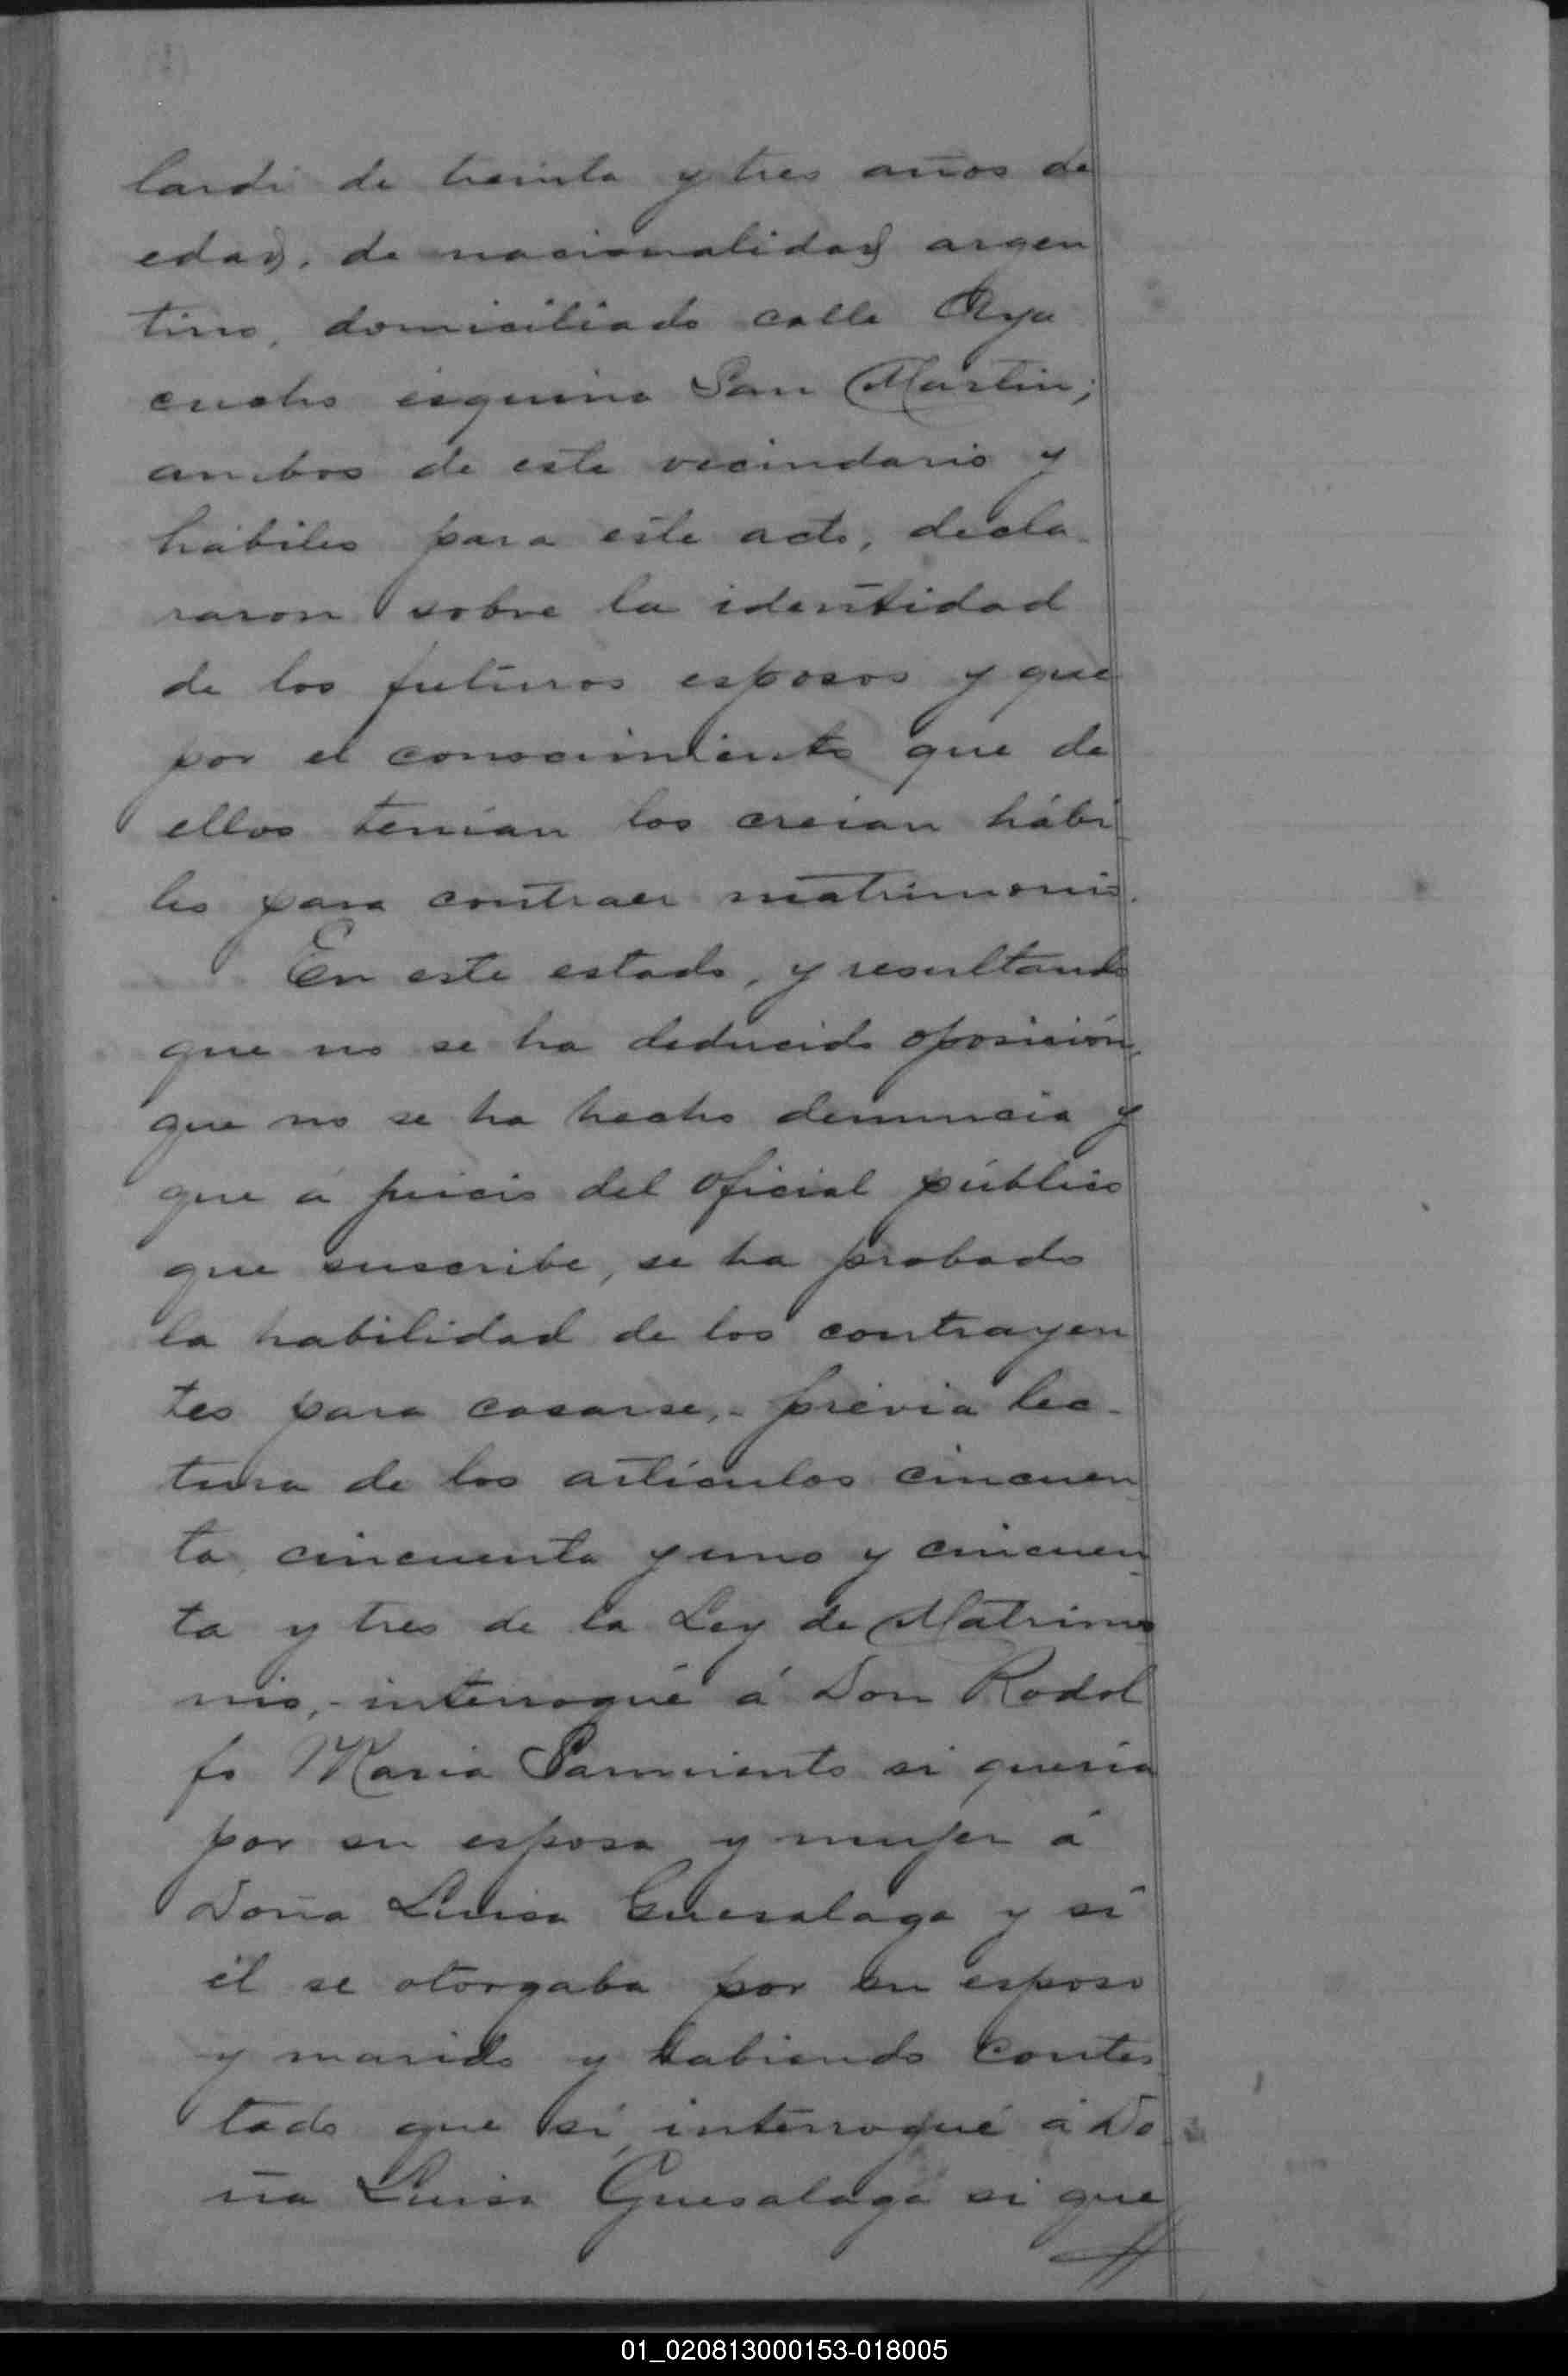 lardi de treinta y tres años de
edad, de nacionalidad argen
tino, domiciliado calle Aya
cucho esquina San Martin;
ambos de este vecindario y
hábiles para este acto, decla-
raron sobre la identidad
de los futuros esposos y que
por el conocimiento que de
ellos tenian los creian hábi
les para contraer matrimonio.
En este estado, y resultando
que no se ha deducido oposición,
que no se ha hecho denuncia y
que á juicio del Oficial público
que suscribe, se ha probado
la habilidad de los contrayen
tes para casarse,- previa lec-
tura de los artículos cincuen
ta, cincuenta y uno y cincuen
ta y tres de la Ley de Matrimo
nio,- interrogué á Don Rodol
fo Maria Sarmiento si queria
por su esposa y mujer á
Doña Luisa Guesalaga y si
él se otorgaba por su esposo
y marido y habiendo contes
tado que sí, interrogué á Do
ña Luisa Guesalaga si que
01_020813000153-018005